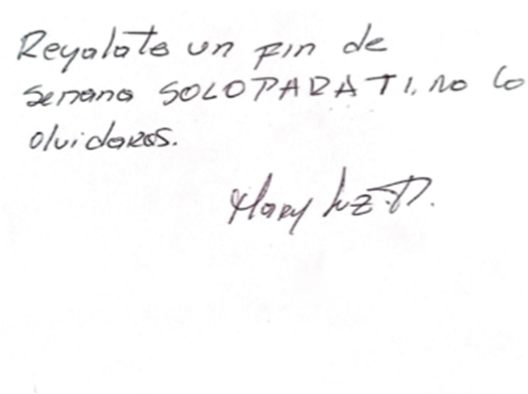 Regalate un fin de
semana SOLO PARA TI, no lo
olvidaras.
Mary Luz D.